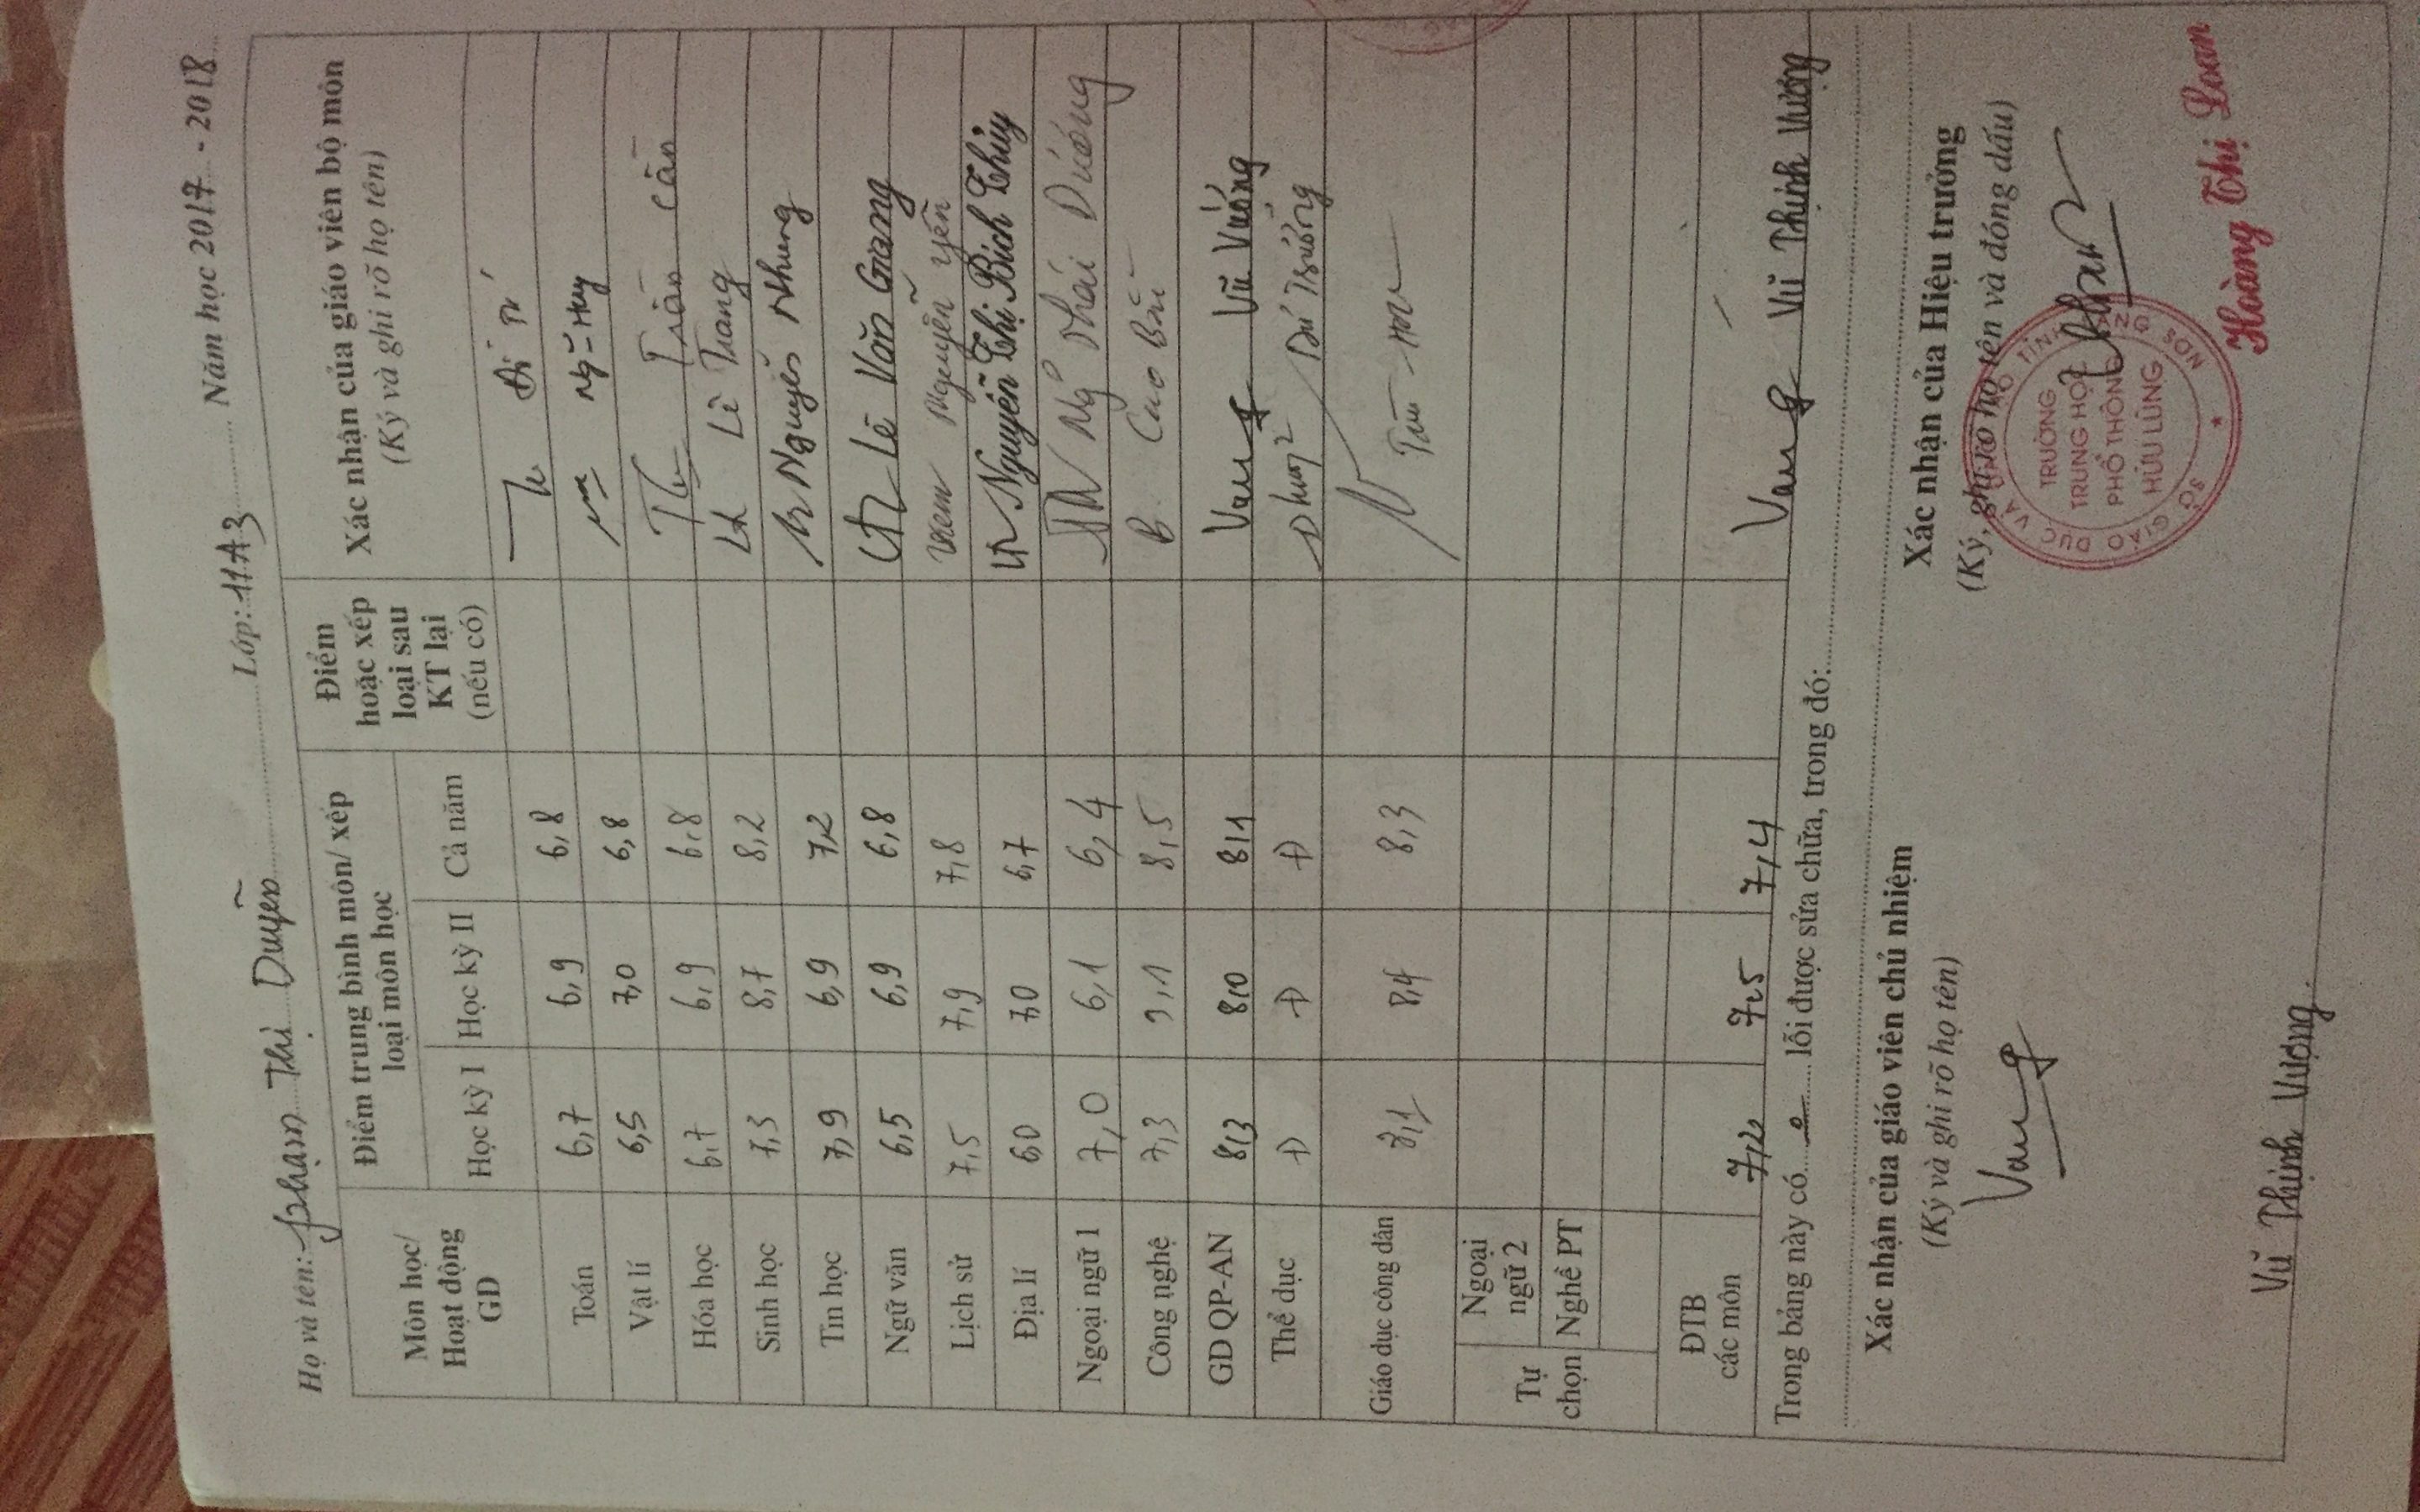 Họ và tên: Phạm Thị Duyên Lớp: 11A3 Năm học 2017 - 2018
Môn học/ Hoạt động GD
Điểm trung bình môn/ xếp loại môn học
Học kỳ I Học kỳ II Cả năm
Điểm hoặc xếp loại sau KT lại (nếu có)
Xác nhận của giáo viên bộ môn
(Ký và ghi rõ họ tên)
Toán 6,7 6,9 6,8
Vật lí 6,5 7,0 6,8 Huy
Hóa học 6,7 6,9 6,8 Trần
Sinh học 7,3 8,7 8,2 Lê Trang
Tin học 7,9 6,9 7,2 Nguyễn Nhung
Ngữ văn 6,5 6,9 6,8 Lê Văn Giang
Lịch sử 7,5 7,9 7,8 Nguyễn Yến
Địa lí 6,0 7,0 6,7 Nguyễn Thị Bích Thủy
Ngoại ngữ 1 7,0 6,1 6,4 Ng Thái Dương
Công nghệ 7,3 9,1 8,5 Cao
GD QP-AN 8,3 8,0 8,1 Vũ Vướng
Thể dục Đ Đ Đ Trường
Giáo dục công dân 8,1 8,4 8,3
Tự chọn
Ngoại ngữ 2
Nghề PT
ĐTB các môn 7,2 7,5 7,4 Vũ Thịnh Vượng
Trong bảng này có 0 lỗi được sửa chữa, trong đó:
Xác nhận của giáo viên chủ nhiệm
(Ký và ghi rõ họ tên)
Vũ Thịnh Vượng.
Xác nhận của Hiệu trưởng
(Ký, ghi rõ họ tên và đóng dấu)
SỞ GIÁO DỤC VÀ ĐÀO TẠO TỈNH LẠNG SƠN
TRƯỜNG
TRUNG HỌC
PHỔ THÔNG
HỮU LŨNG
Hoàng Thị Loan